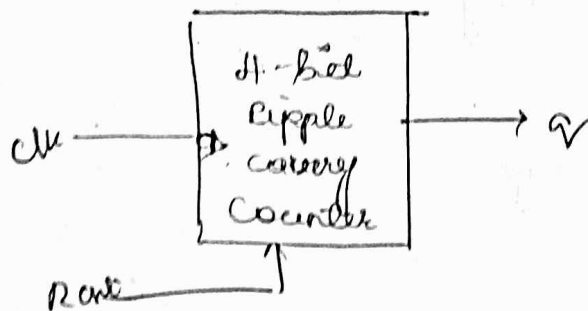 4-bit
Ripple
Clk
carry
Counter
Q
Reset